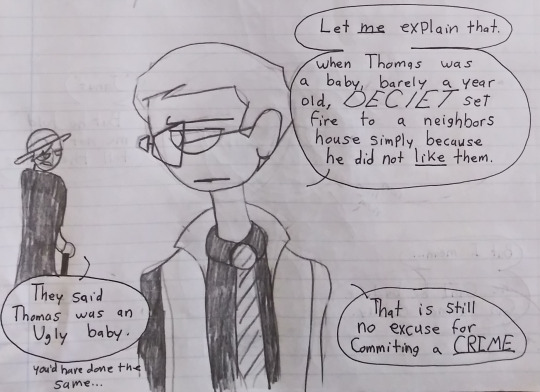 Let me explain that.
When Thomas was
a baby, barely a year
old, DECIET set
fire to a neighbors
house simply because
he did not like them.
They said
Thomas was an
Ugly baby.
you'd have done the
same...
That is still
no excuse for
Commiting a CRIME